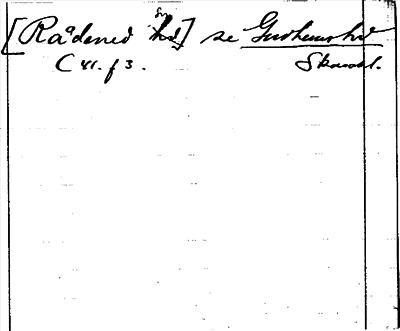 [Rådened sn] se Gudhems hd
C 41. f 3. Skarabl.